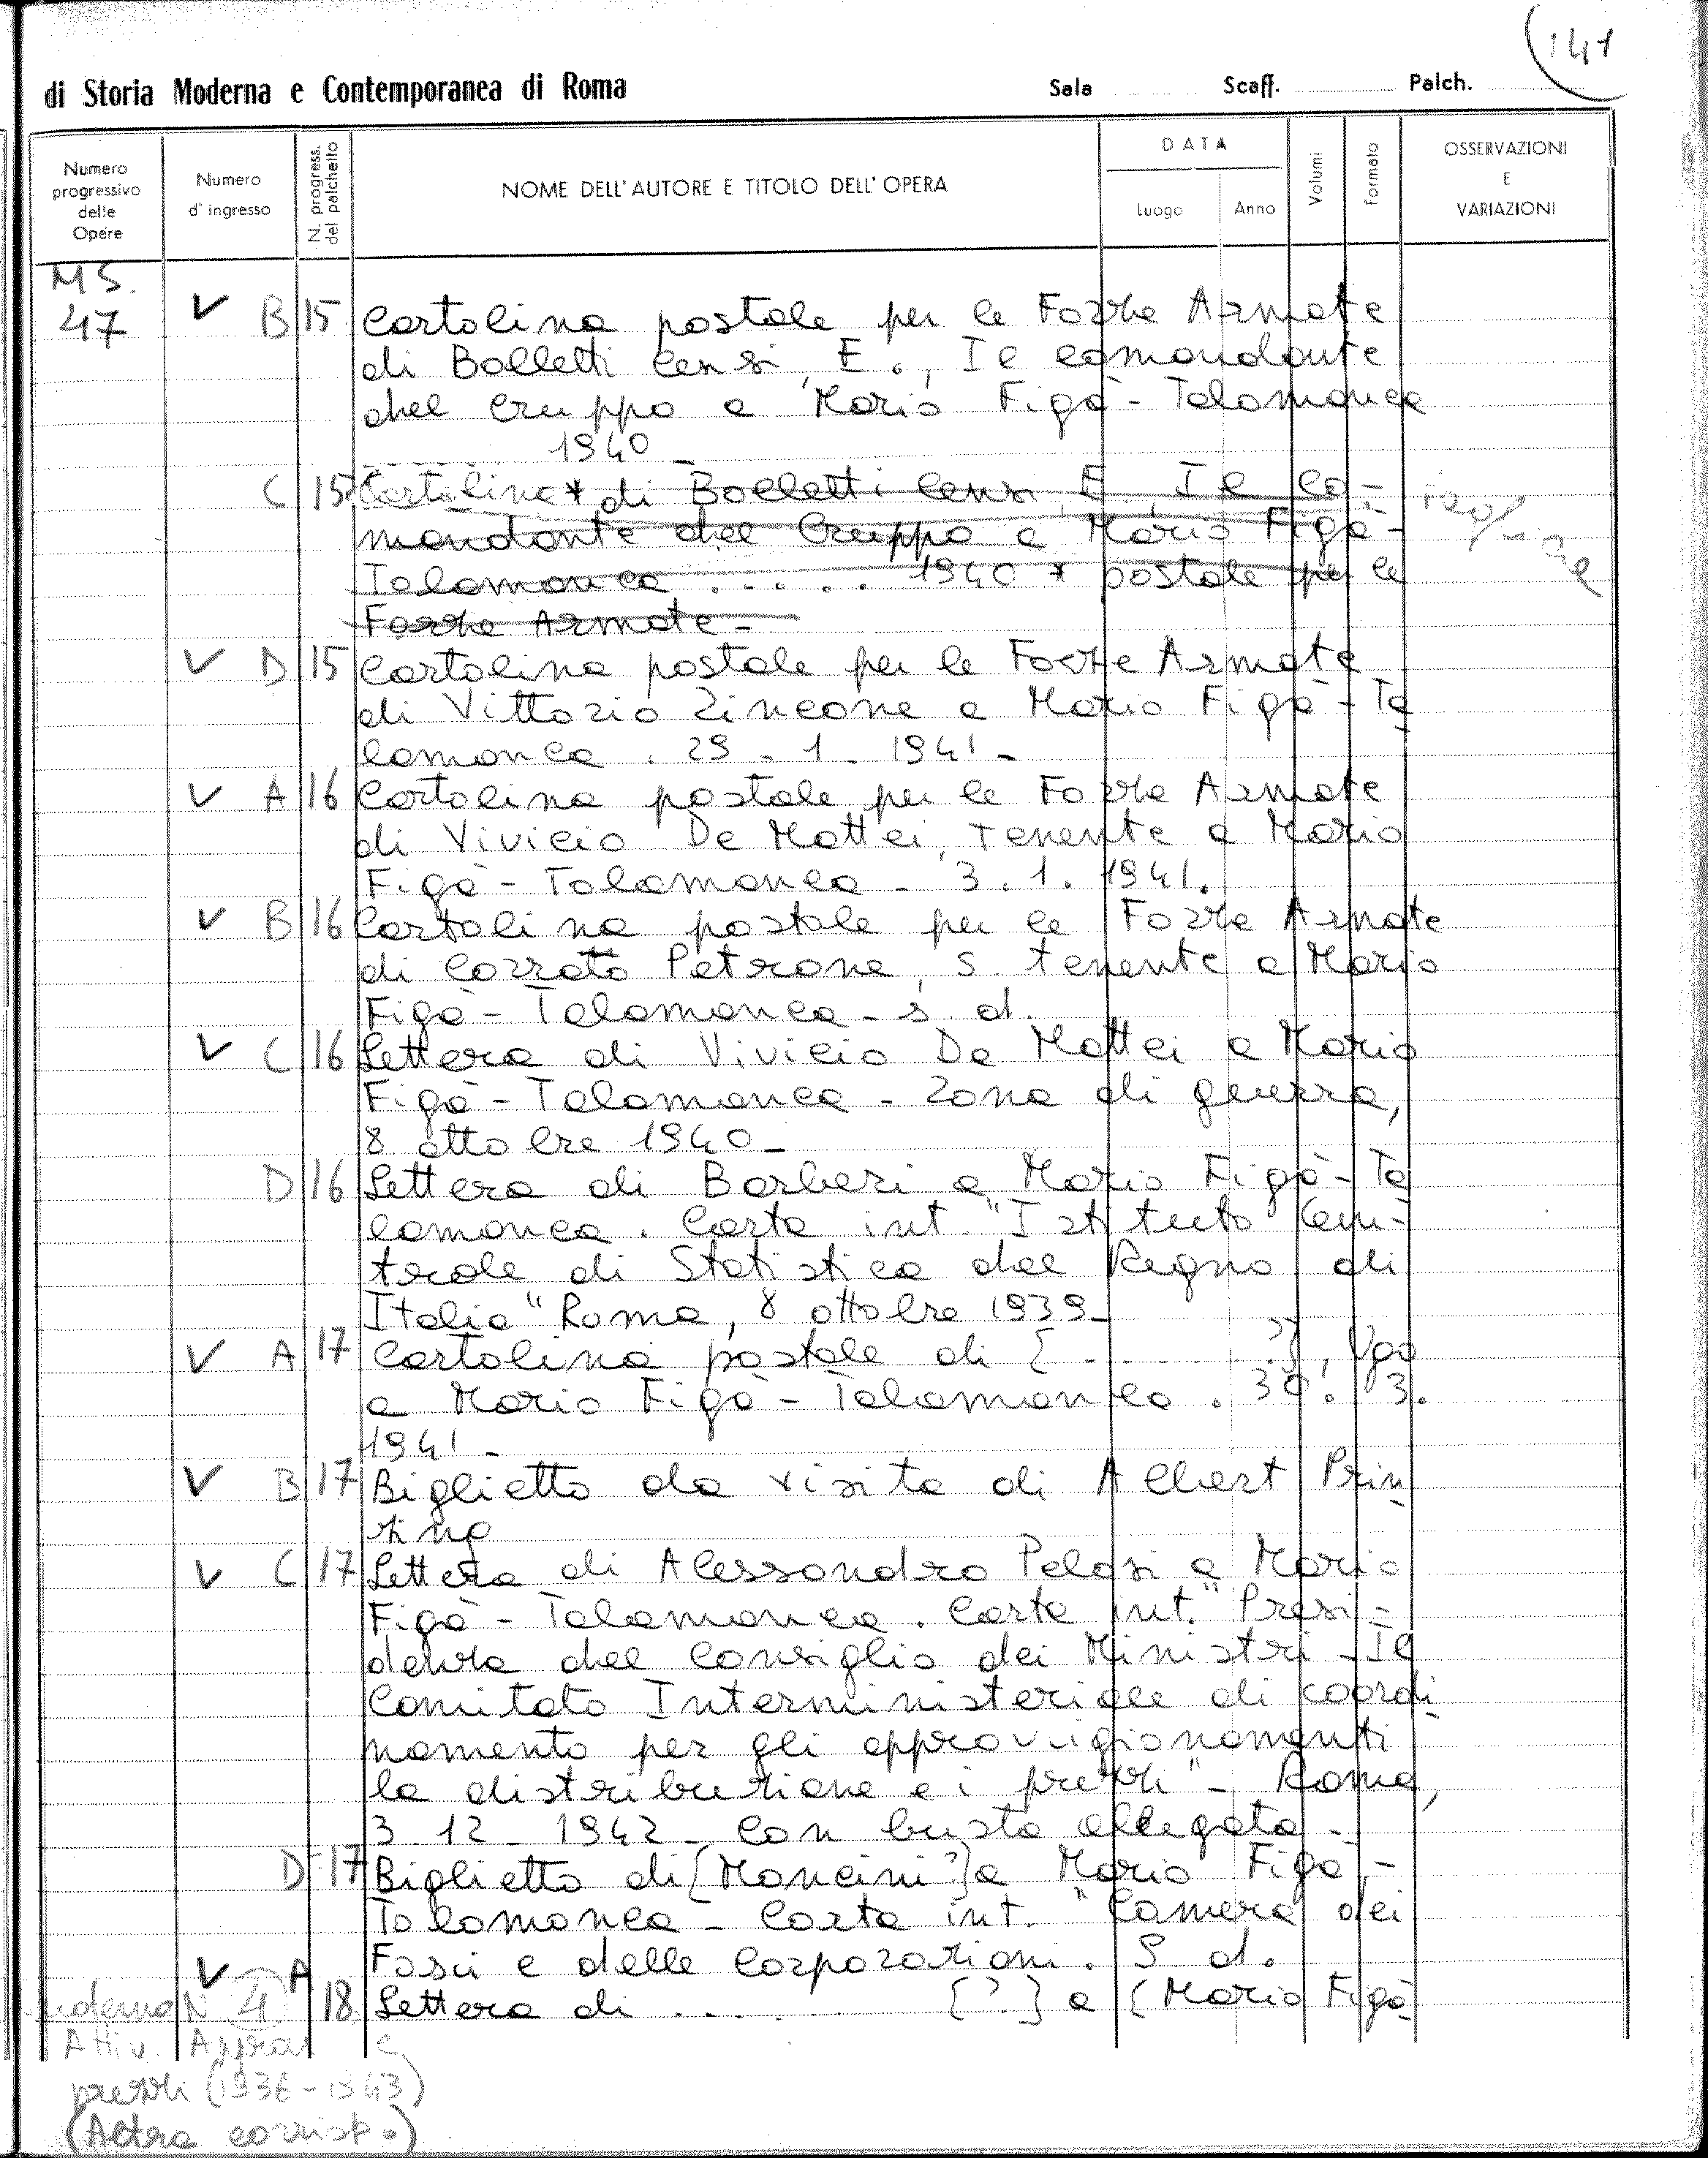 141
di Storia Moderna e Contemporanea di Roma Sala Scaff. Palch.
Numero progressivo delle Opere
Numero d'ingresso
N. progress. del palchetto
NOME DELL'AUTORE E TITOLO DELL'OPERA
DATA
Luogo
Anno
Volumi
Formato
OSSERVAZIONI E VARIAZIONI
MS.
47 V B 15 Cartolina postale per le Forze Armate
di Balletti Censi, E., Il comandante
del Gruppo a Mario Figà-Talamanca
1940_
C 15 Cartolina* di Balletti Censi, E., Il co-
mandante del Gruppo a Mario Figà-
Talamanca ..... 1940 * postale per le
Forze Armate_
V D 15 Cartolina postale per le Forze Armate
di Vittorio Zincone a Mario Figà-Ta
lamanca. 29-1-1941-
V A 16 Cartolina postale per le Forze Armate
di Vivicio De Mattei, Tenente a Mario
Figà-Talamanca_ 3.1.1941.
V B 16 Cartolina postale per le Forze Armate
di Corrato Petrone, S. tenente a Mario
Figà-Talamanca_ s. d.
V C 16 Lettera di Vivicio De Mattei a Mario
Figà-Talamanca_ Zona di guerra,
8 ottobre 1940_
D 16 Lettera di Barberi a Mario Figà-Ta
lamanca. Carta int. "Istituto Cen-
trale di Statistica del Regno di
Italia" Roma, 8 ottobre 1939_
V A 17 Cartolina postale di [.........?], Ugo
a Mario Figà-Talamanca. 30. 3.
1941_
V B 17 Biglietto da visita di Albert Prin
zing
V C 17 Lettera di Alessandro Pelosi a Mario
Figà-Talamanca. Carta int. "Presi-
denza del Consiglio dei Ministri_Il
Comitato Interministeriale di coordi
namento per gli approvvigionamenti
la distribuzione e i prezzi"_ Roma,
3-12-1942_ Con busta allegata_
D 17 Biglietto di [Mancini?] a Mario Figà-
Talamanca_ Carta int. "Camera dei
Fasci e delle Corporazioni. S. d.
V A
18 Lettera di ..... [?] a [Mario Figà
N 4
Attiv. e
prezzi (1936-1943)
(Altra corrisp.)